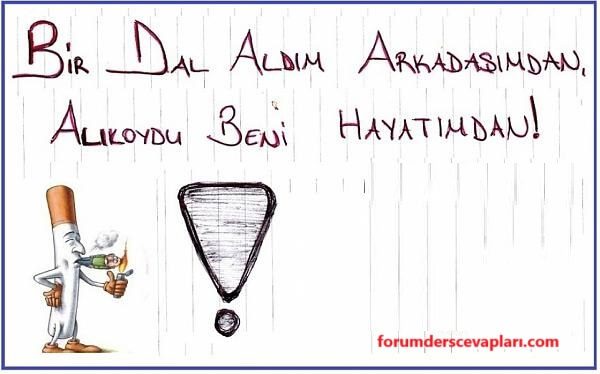 BİR DAL ALDIM ARKADAŞIMDAN,
ALIKOYDU BENİ HAYATIMDAN!
forumderscevapları.com